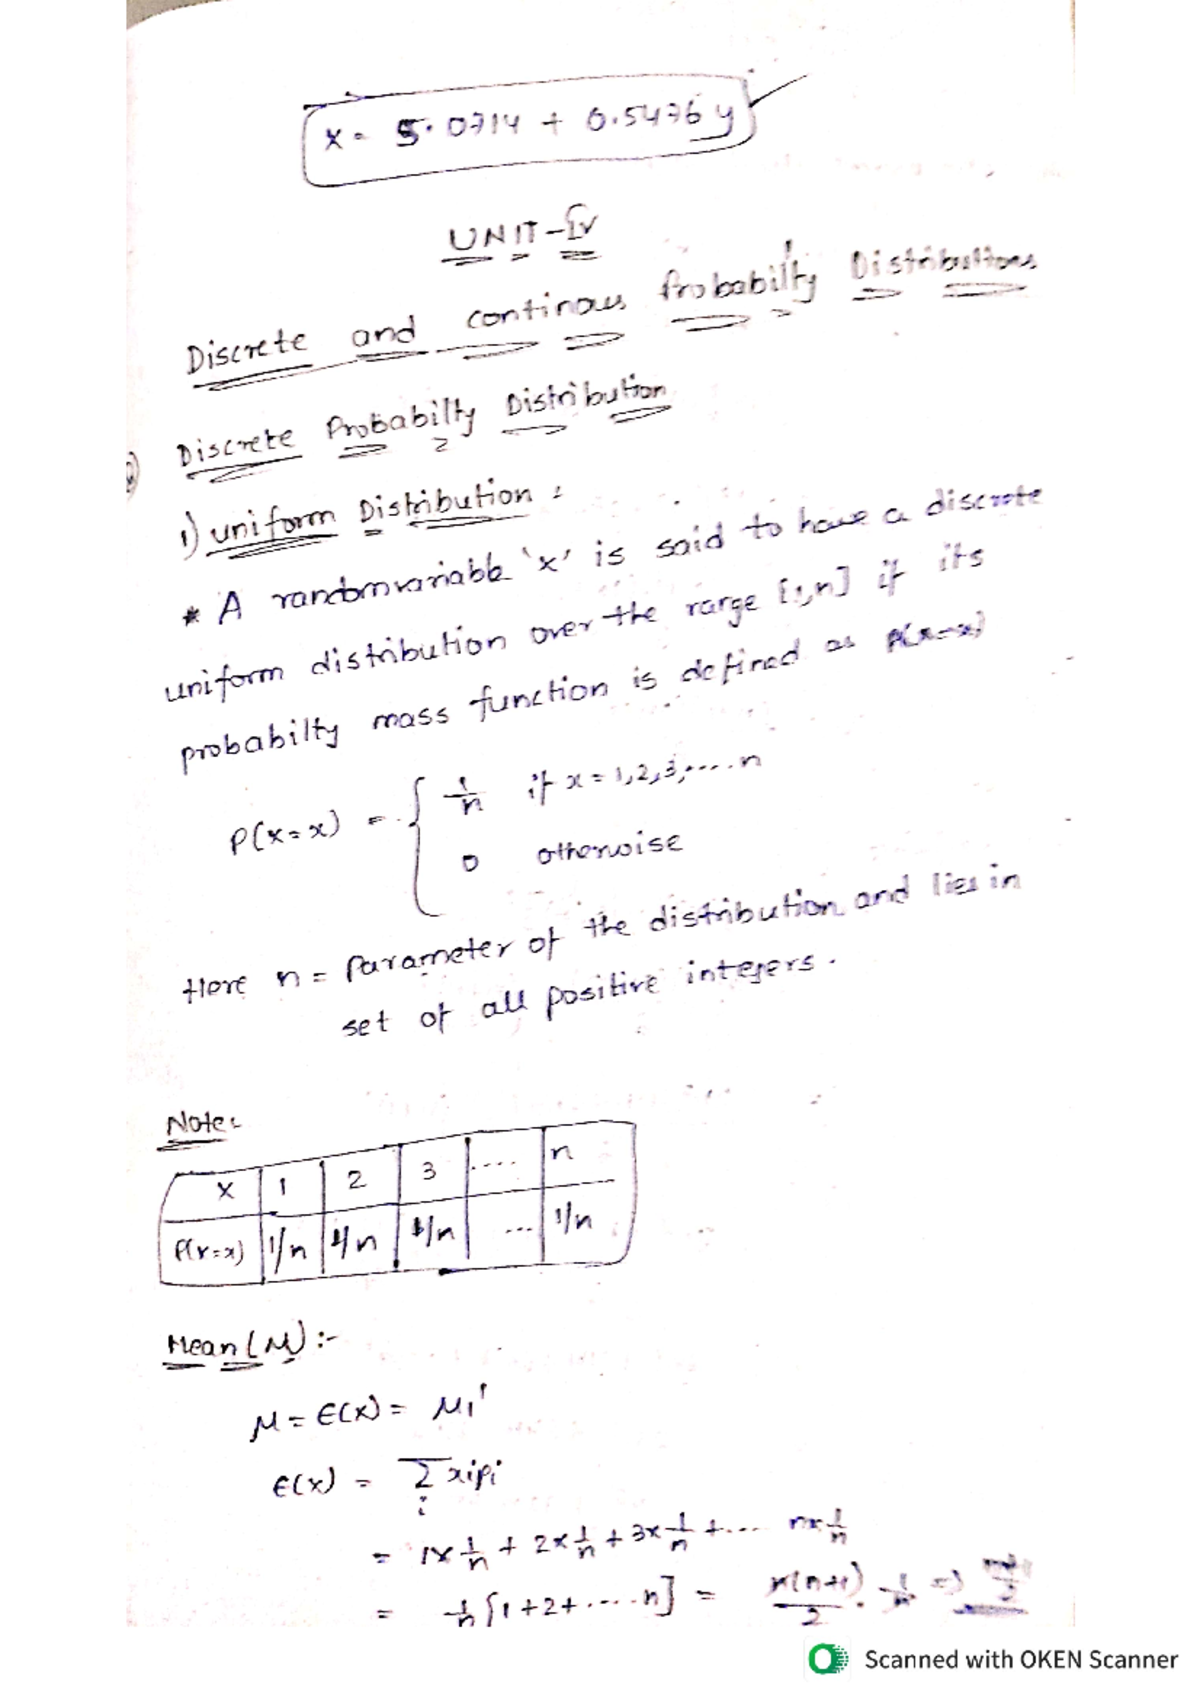 x = 5.0714 + 0.5476 y
UNIT-IV
Discrete and continous Probabilty Distributions
Discrete Probabilty Distribution
1) uniform Distribution :
* A randomvariable 'x' is said to have a discrete
uniform distribution over the range [1,n] if its
probabilty mass function is defined as P(X=x)
P(X=x) = { 1/n if x = 1,2,3,....n
0 otherwise
Here n = Parameter of the distribution and lies in
set of all positive integers.
Note:
X | 1 | 2 | 3 | .... | n
P(X=x) | 1/n | 1/n | 1/n | ... | 1/n
Mean (M) :-
M = E(X) = M1'
E(x) = Σi xipi
= 1x 1/n + 2x 1/n + 3x 1/n + ... nx 1/n
= 1/n [1+2+....n] = n(n+1)/2 . 1/n =>
Scanned with OKEN Scanner